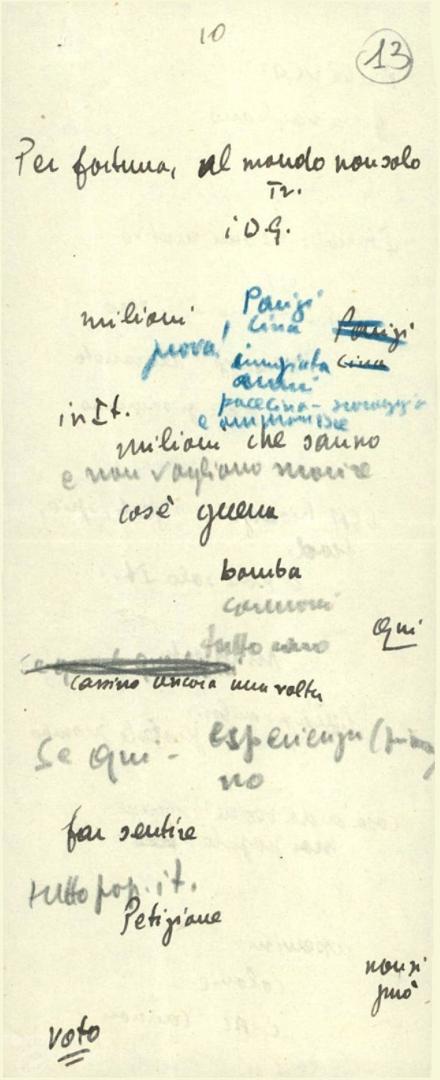 10
13
Per fortuna, al mondo non solo
Tr.
i D.G.
milioni
Parigi
prova, Cina
Parigi
Cina
armi
in It.
milioni che sanno
e non vogliono morire
cos'è guerra
bomba
cannoni
tutto
qui
Cassino ancora una volta
Se qui - esperienza
no
far sentire
tutto pop. it.
Petizione
non si
può
voto